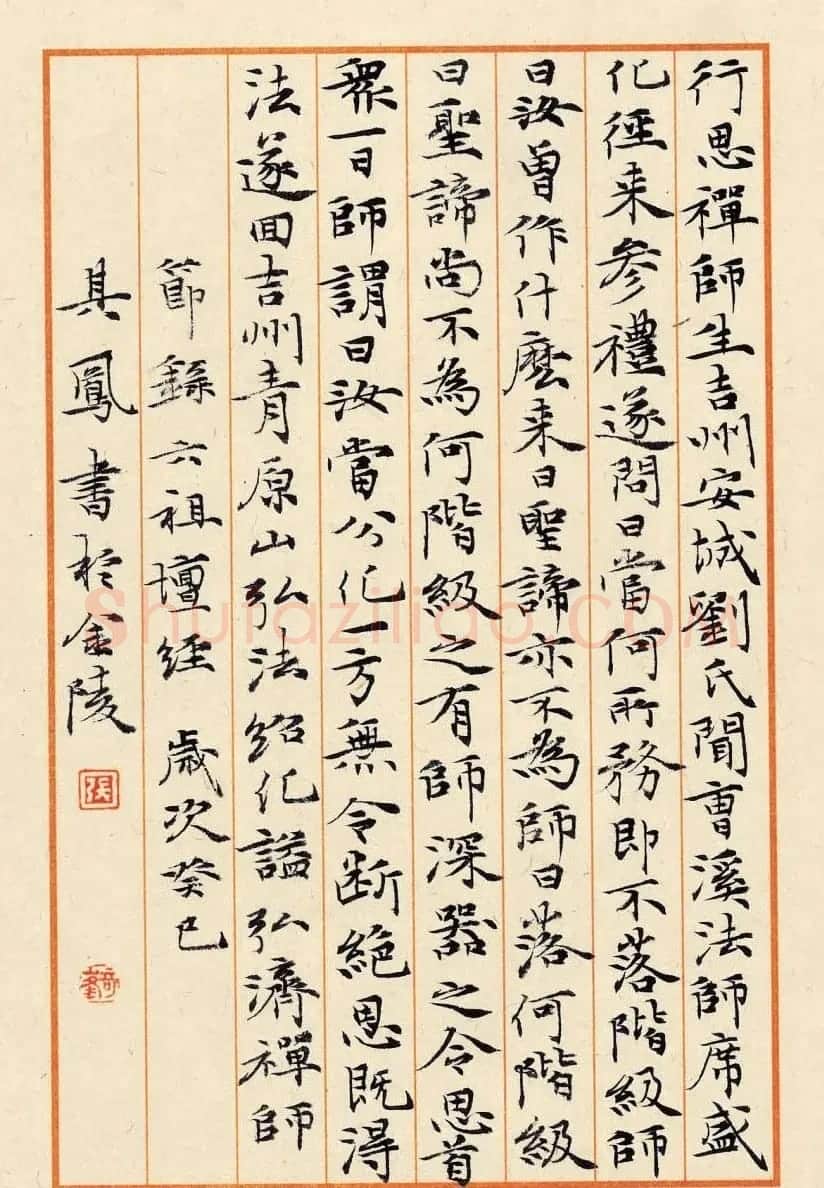 行思禪師生吉州安城劉氏聞曹溪法師席盛
化徑来参禮遂問曰當何所務即不落階級師
曰汝曾作什麽来曰聖諦亦不為師曰落何階級
曰聖諦尚不為何階級之有師深器之令思首
衆一日師謂曰汝當分化一方無令断絶思既得
法遂回吉州青原山弘法紹化謚弘濟禪師
節録六祖壇經 歲次癸巳
其鳳書於金陵
張
Shufaziliao.COM